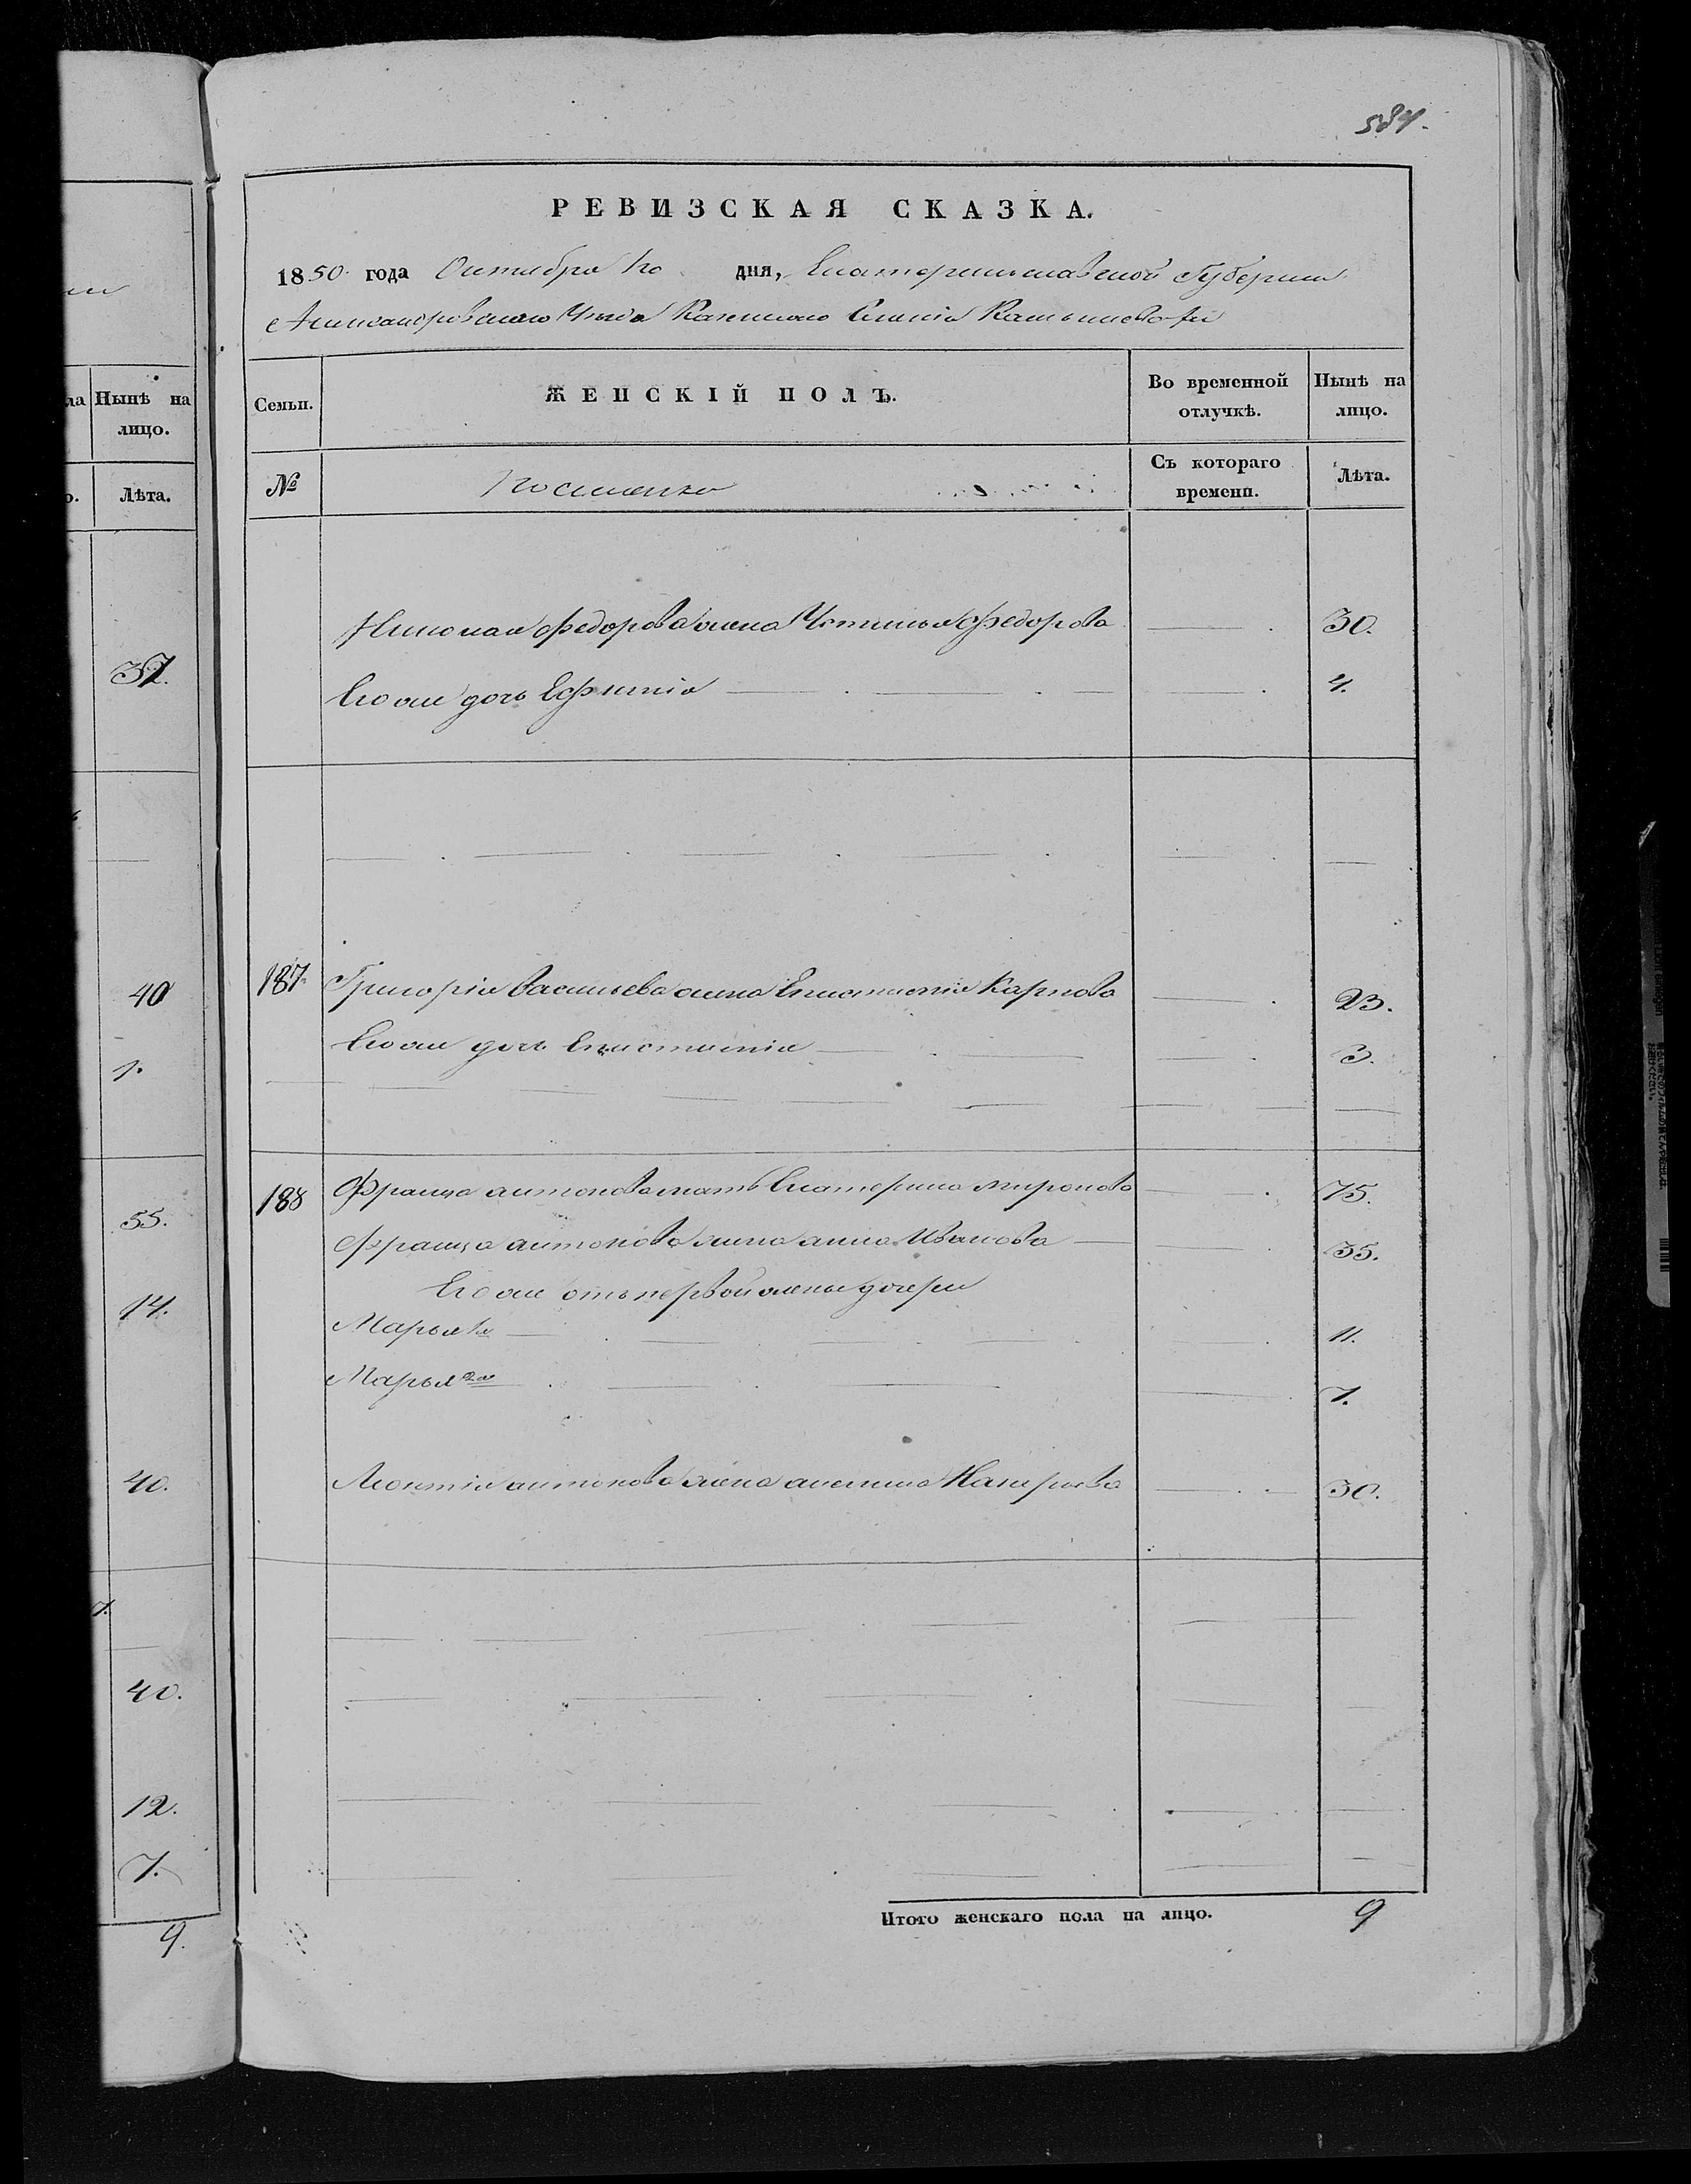 584.
РЕВИЗСКАЯ СКАЗКА.
1850 года Октября 1го дня, Екатеринославской Губернии
Александровского Уезда Казенного Селенія
Нынѣ на
лицо.
Лѣта.
Семьи.
ЖЕНСКІЙ ПОЛЪ.
Во временной
отлучкѣ.
Нынѣ на
лицо.
№
Съ котораго
времени.
Лѣта.
Николая Федорова жена Устинья Федорова 30.
Его же дочь Ефимія 4.
37.
187. Григорія Васильева жена Карпова 23.
Его же дочь 3.
40
1.
188 Франца Антонова мать Екатерина Миронова 75.
Франца Антонова жена Анна Иванова 35.
Его же отъ первой жены дочери
Марья 1я 11.
Марья 2я 7.
Леонтія Антонова жена Назарьева 30.
55.
14.
40.
7.
40.
12.
7.
9.
Итого женскаго пола на лицо. 9